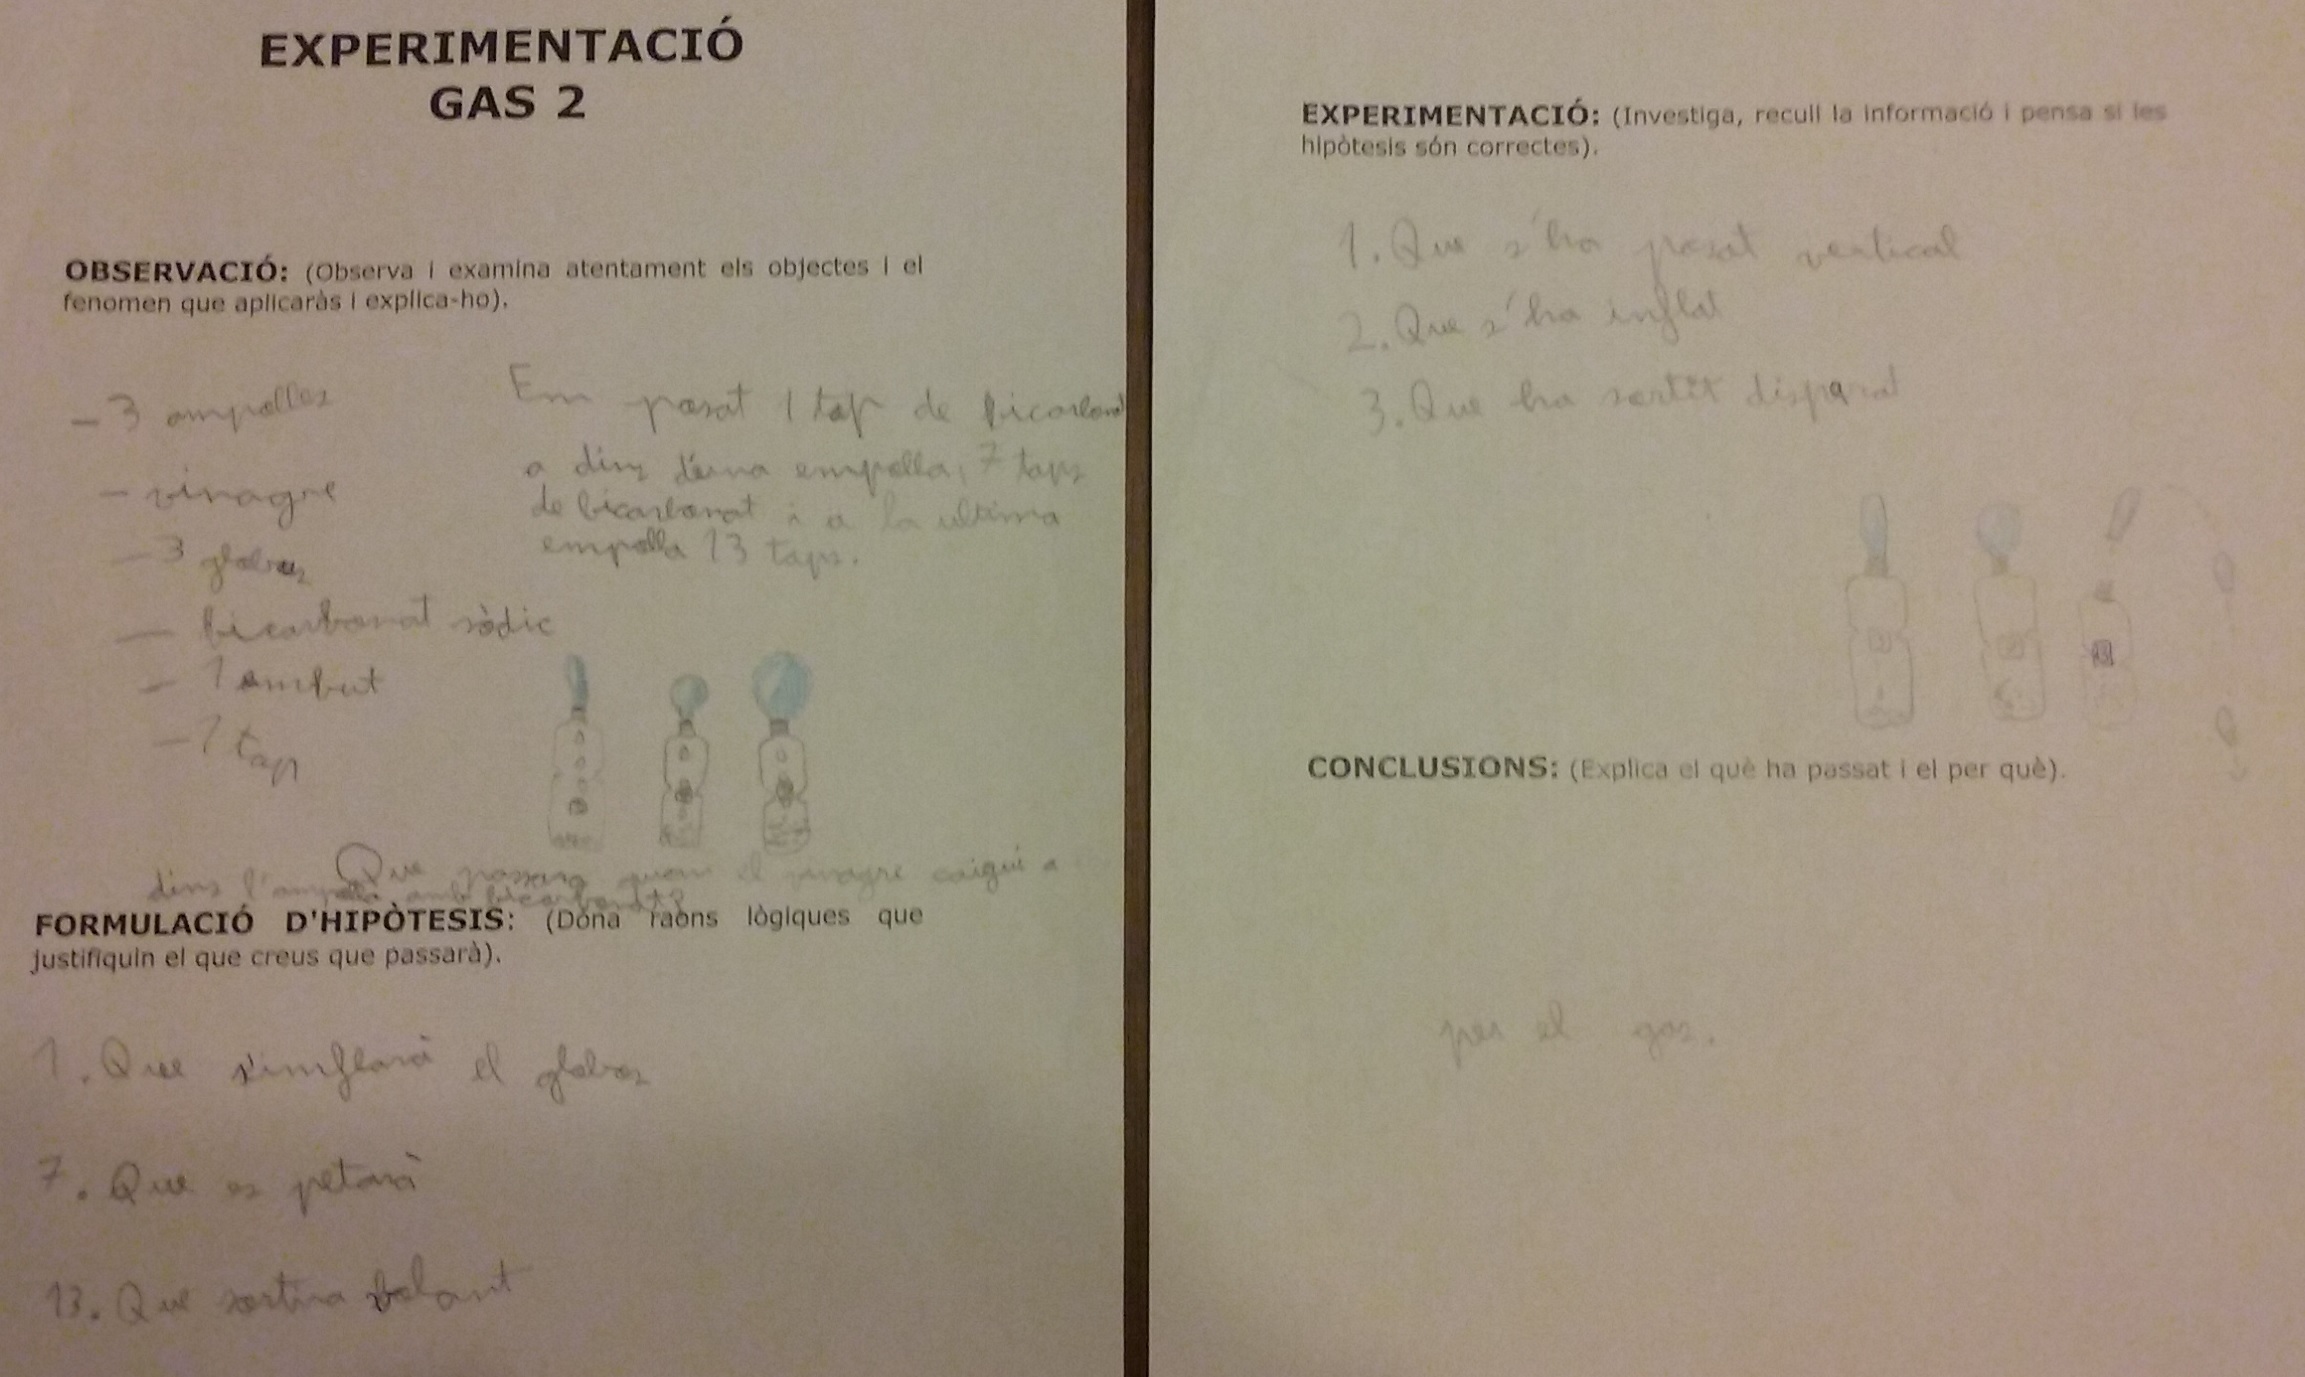 EXPERIMENTACIÓ
GAS 2
OBSERVACIÓ: (Observa i examina atentament els objectes i el
fenomen que aplicaràs i explica-ho).
- 3 ampolles
- vinagre
- 3 globus
- bicarbonat sòdic
- 1 embut
- 1 tap
Em posat 1 tap de bicarbonat
a dins d'una empolla, 7 taps
de bicarbonat i a la ultima
empolla 13 taps.
Que passara quan el vinagre caigui a
dins l'ampolla amb bicarbonat?
FORMULACIÓ D'HIPÒTESIS: (Dóna raons lògiques que
justifiquin el que creus que passarà).
1. Que s'inflarà el globus
7. Que es petarà
13. Que sortira bolant
EXPERIMENTACIÓ: (Investiga, recull la informació i pensa si les
hipòtesis són correctes).
1. Que s'ha posat vertical
2. Que s'ha inflat
3. Que ha sortit disparat
CONCLUSIONS: (Explica el què ha passat i el per què).
per el gas.